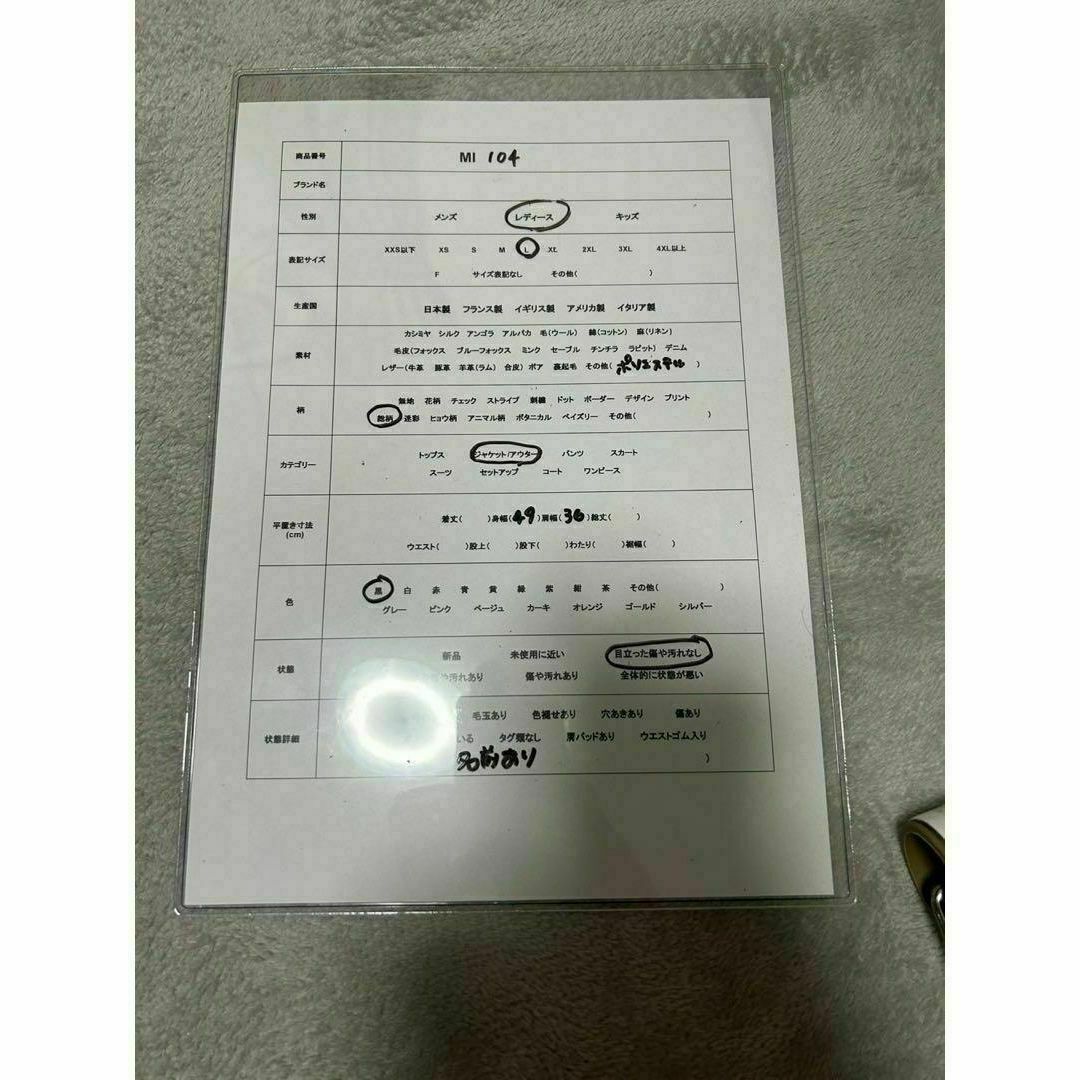 商品番号 MI 104
ブランド名
性別 メンズ レディース キッズ
表記サイズ XXS以下 XS S M L XL 2XL 3XL 4XL以上
F サイズ表記なし その他( )
生産国 日本製 フランス製 イギリス製 アメリカ製 イタリア製
素材 カシミヤ シルク アンゴラ アルパカ 毛(ウール) 綿(コットン) 麻(リネン)
毛皮(フォックス ブルーフォックス ミンク セーブル チンチラ ラビット) デニム
レザー(牛革 豚革 羊革(ラム) 合皮) ボア 裏起毛 その他( ポリエステル )
柄 無地 花柄 チェック ストライプ 刺繍 ドット ボーダー デザイン プリント
総柄 迷彩 ヒョウ柄 アニマル柄 ボタニカル ペイズリー その他( )
カテゴリー トップス ジャケット/アウター パンツ スカート
スーツ セットアップ コート ワンピース
平置き寸法 (cm) 着丈( )身幅( 49 )肩幅( 36 )総丈( )
ウエスト( )股上( )股下( )わたり( )裾幅( )
色 黒 白 赤 青 黄 緑 紫 紺 茶 その他( )
グレー ピンク ベージュ カーキ オレンジ ゴールド シルバー
状態 新品 未使用に近い 目立った傷や汚れなし
や汚れあり 傷や汚れあり 全体的に状態が悪い
状態詳細 毛玉あり 色褪せあり 穴あきあり 傷あり
いる タグ類なし 肩パッドあり ウエストゴム入り
名前あり )